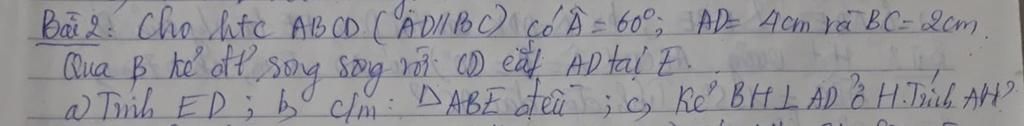 Bài 2: Cho htc ABCD (AD//BC) có Â = 60°; AD = 4cm và BC = 2cm.
Qua B kẻ đt song song với CD cắt AD tại E.
a) Tính ED; b, c/m: ΔABE đều; c, Kẻ BH⊥AD ở H. Tính AH?